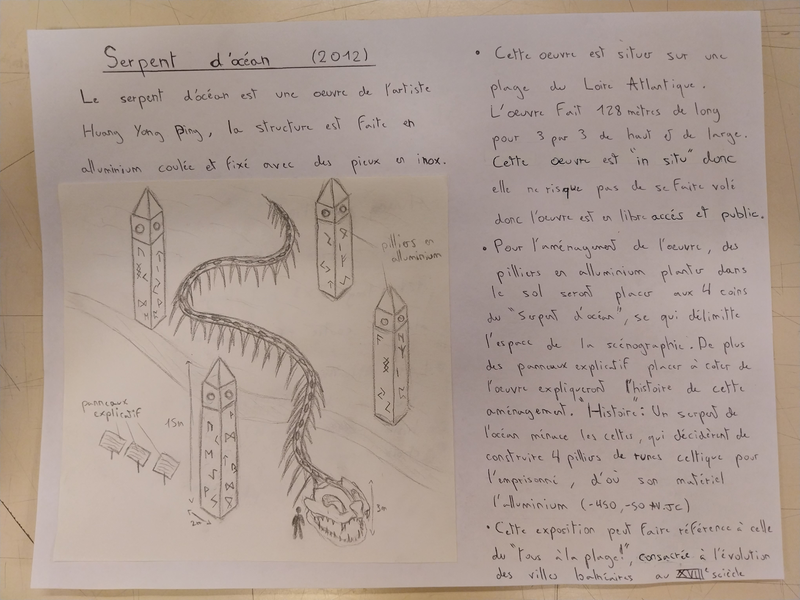 Serpent d'océan (2012)
Le serpent d'océan est une oeuvre de l'artiste
Huang Yong Ping, la structure est faite en
alluminium coulée et fixé avec des pieux en inox.
pilliers en
alluminium
panneaux
explicatif
15m
2m
3m
• Cette oeuvre est situer sur une
plage du Loire Atlantique.
L'oeuvre fait 128 mètres de long
pour 3 par 3 de haut et de large.
Cette oeuvre est "in situ" donc
elle ne risque pas de se faire volé
donc l'oeuvre est en libre accés et public.
• Pour l'aménagement de l'oeuvre, des
pilliers en alluminium planter dans
le sol seront placer aux 4 coins
du "Serpent d'océan", se qui délimitte
l'espace de la scénographie. De plus
des panneaux explicatif placer à coter de
l'oeuvre expliqueront l'histoire de cette
aménagement. "Histoire": Un serpent de
l'océan ménace les celtes, qui décidèrent de
construire 4 pilliers de runes celtique pour
l'emprisonné, d'où son matériel
l'alluminium (-450,-50 av.JC)
• Cette exposition peut faire référence à celle
du "tous à la plage!", consacrée à l'évolution
des villes balnéaires au XVIIIe scièècle